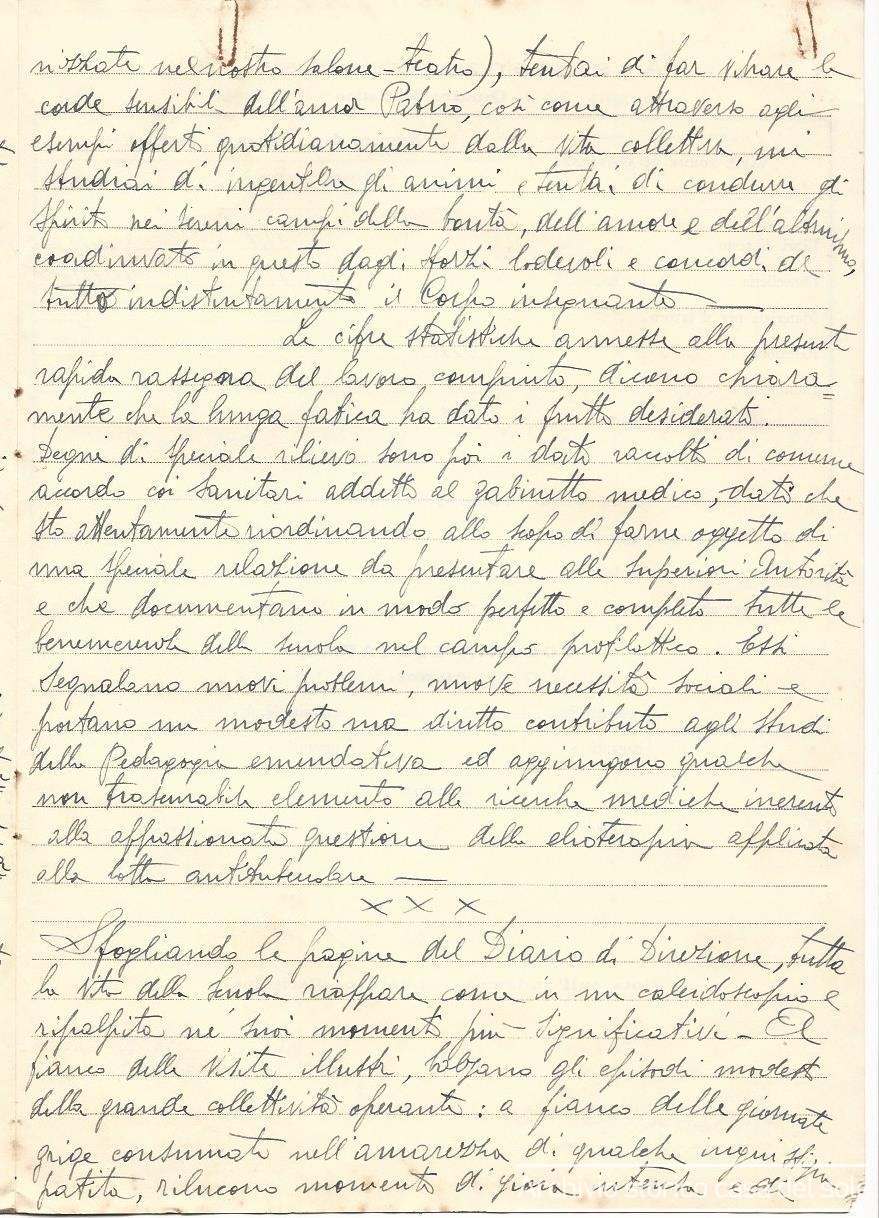 nizzate nel nostro salone-teatro), tentai di far vibrare le
corde sensibili dell'amor Patrio, così come attraverso agli
esempi offerti quotidianamente dalla vita collettiva, mi
studiai di ingentilire gli animi e tentai di condurre gli
spiriti nei sereni campi della bontà, dell'amore e dell'altruismo,
coadiuvato in questo dagli sforzi lodevoli e concordi di
tutto indistintamente il Corpo insegnante —
Le cifre statistiche annesse alla presente
rapida rassegna del lavoro compiuto, dicono chiara=
mente che la lunga fatica ha dato i frutti desiderati.
Degni di speciale rilievo sono poi i dati raccolti di comune
accordo coi Sanitari addetti al gabinetto medico, dati che
sto attentamente riordinando allo scopo di farne oggetto di
una speciale relazione da presentare alle Superiori Autorità
e che documentano in modo perfetto e completo tutte le
benemerenze della scuola nel campo profilattico. Essi
segnalano nuovi problemi, nuove necessità sociali e
portano un modesto ma diretto contributo agli studi
della Pedagogia emendativa ed aggiungono qualche
non trascurabile elemento alle ricerche mediche inerenti
alla appassionata questione della elioterapia applicata
alla lotta antitubercolare —
x x x
Sfogliando le pagine del Diario di Direzione, tutta
la vita della Scuola riappare come in un caleidoscopio e
ripalpita ne' suoi momenti più significativi - Al
fianco delle visite illustri, balzano gli episodi modesti
della grande collettività operante: a fianco delle giornate
grige consumate nell'amarezza di qualche ingiustizia
patita, rilucono momenti di gioia intensa e di
Archivio Storico casa del sole